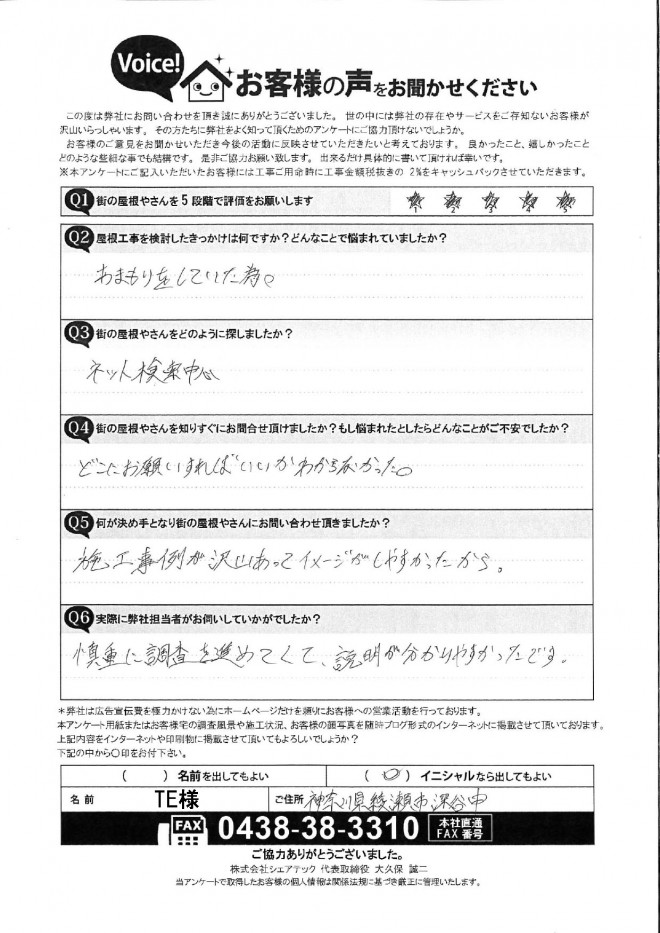 Voice!
お客様の声をお聞かせください
この度は弊社にお問い合わせを頂き誠にありがとうございました。 世の中には弊社の存在やサービスをご存知ないお客様が
沢山いらっしゃいます。 その方たちに弊社をよく知って頂くためのアンケートにご協力頂けないでしょうか。
お客様のご意見をお聞かせいただき今後の活動に反映させていただきたいと考えております。 良かったこと、嬉しかったこと
どのような些細な事でも結構です。 是非ご協力お願い致します。 出来るだけ具体的に書いて頂ければ幸いです。
※本アンケートにご記入いただいたお客様には工事ご用命時に工事金額税抜きの 2%をキャッシュバックさせていただきます。
Q1 街の屋根やさんを5段階で評価をお願いします 1 2 3 4 5
Q2 屋根工事を検討したきっかけは何ですか？どんなことで悩まれていましたか？
あまもりをしていた為。
Q3 街の屋根やさんをどのように探しましたか？
ネット検索中心
Q4 街の屋根やさんを知りすぐにお問合せ頂けましたか？もし悩まれたとしたらどんなことがご不安でしたか？
どこにお願いすればいいかわからなかった。
Q5 何が決め手となり街の屋根やさんにお問い合わせ頂きましたか？
施工事例が沢山あってイメージがしやすかったから。
Q6 実際に弊社担当者がお伺いしていかがでしたか？
慎重に調査を進めてくて、説明が分かりやすかったです。
＊弊社は広告宣伝費を極力かけない為にホームページだけを頼りにお客様への営業活動を行っております。
本アンケート用紙またはお客様宅の調査風景や施工状況、お客様の顔写真を随時ブログ形式のインターネットに掲載させて頂いております。
上記内容をインターネットや印刷物に掲載させて頂いてもよろしいでしょうか？
下記の中から〇印をお付下さい。
（ ）名前を出してもよい （〇）イニシャルなら出してもよい
名 前 TE様 ご住所 神奈川県綾瀬市深谷中
FAX 0438-38-3310 本社直通 FAX 番号
ご協力ありがとうございました。
株式会社シェアテック 代表取締役 大久保 誠二
当アンケートで取得したお客様の個人情報は関係法規に基づき厳正に管理いたします。